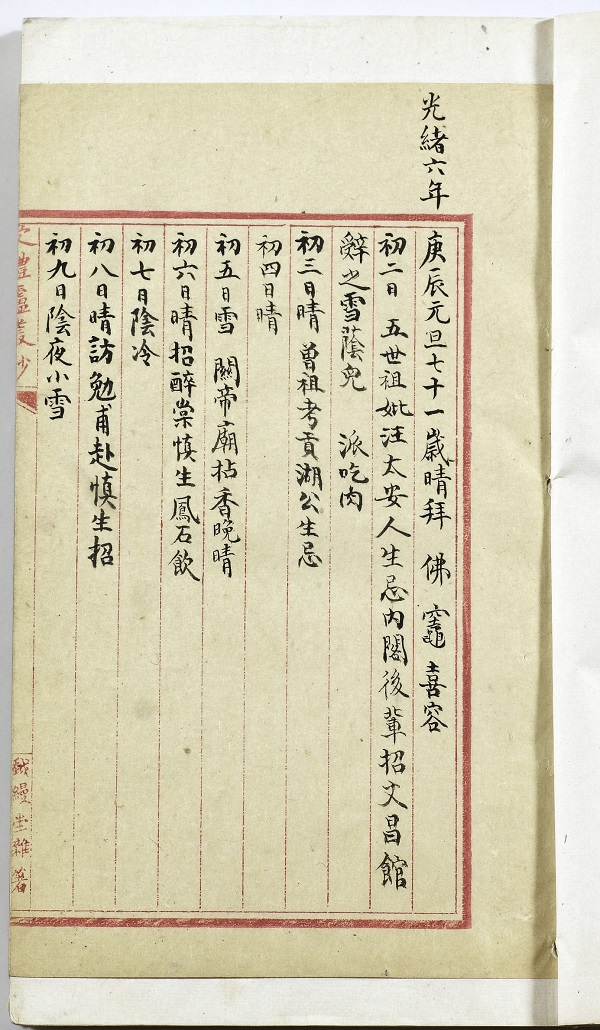 光緒六年
庚辰元旦七十一歲晴拜 佛 竈 喜容
初二日 五世祖妣汪太安人生忌內閣後輩招文昌館
辭之雪蔭兒 派吃肉
初三日晴 曾祖考貢湖公生忌
初四日晴
初五日雪 關帝廟拈香晚晴
初六日晴招醉棠慎生鳳石飲
初七日陰冷
初八日晴訪勉甫赴慎生招
初九日陰夜小雪
禮靈叢鈔
緩坐雜著